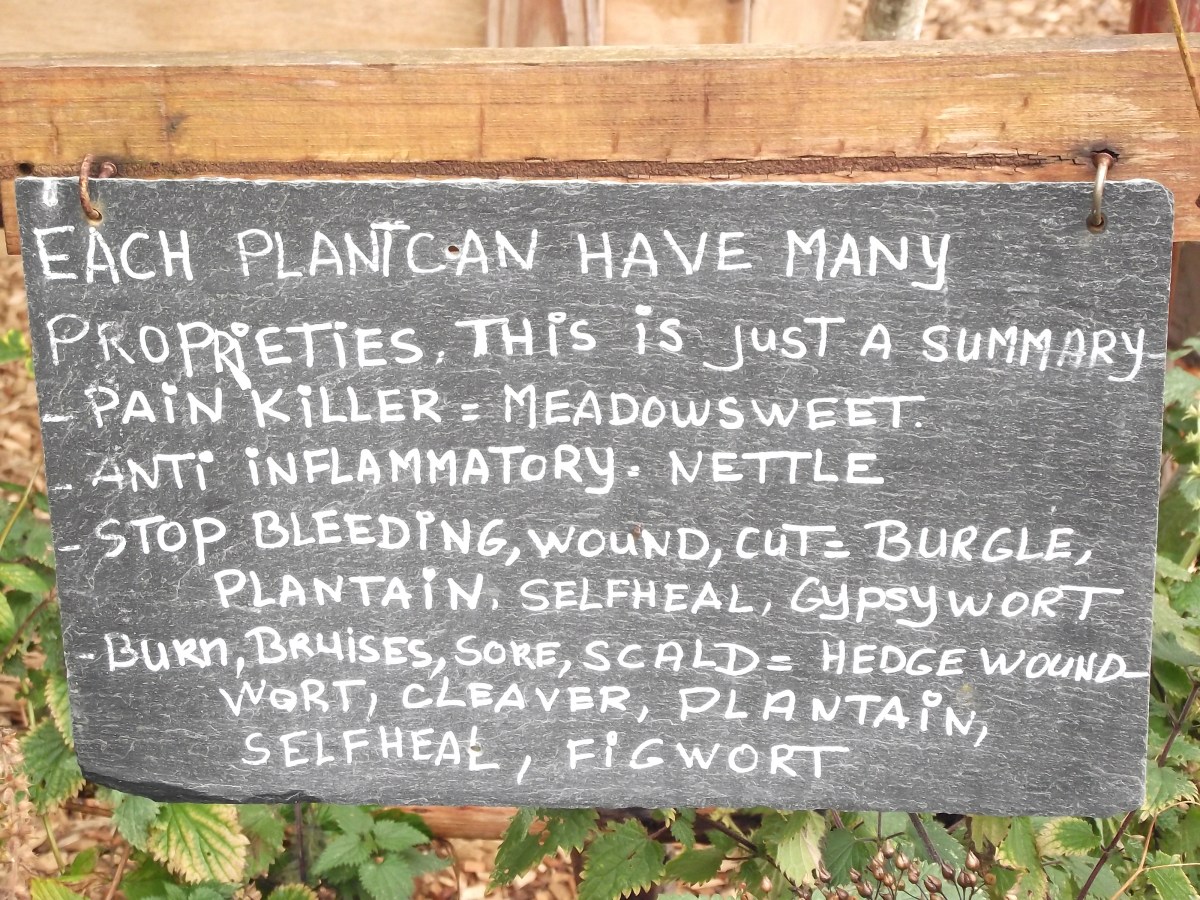 EACH PLANT CAN HAVE MANY
PROPRiETiES. THiS iS JUST A SUMMARY
- PAiN KiLLER = MEADOWSWEET.
- ANTi iNFLAMMATORY = NETTLE
- STOP BLEEDiNG, WOUND, CUT = BURGLE,
PLANTAiN, SELFHEAL, GYPSYWORT
- BURN, BRUiSES, SORE, SCALD = HEDGE WOUND-
WORT, CLEAVER, PLANTAiN,
SELFHEAL, FiGWORT